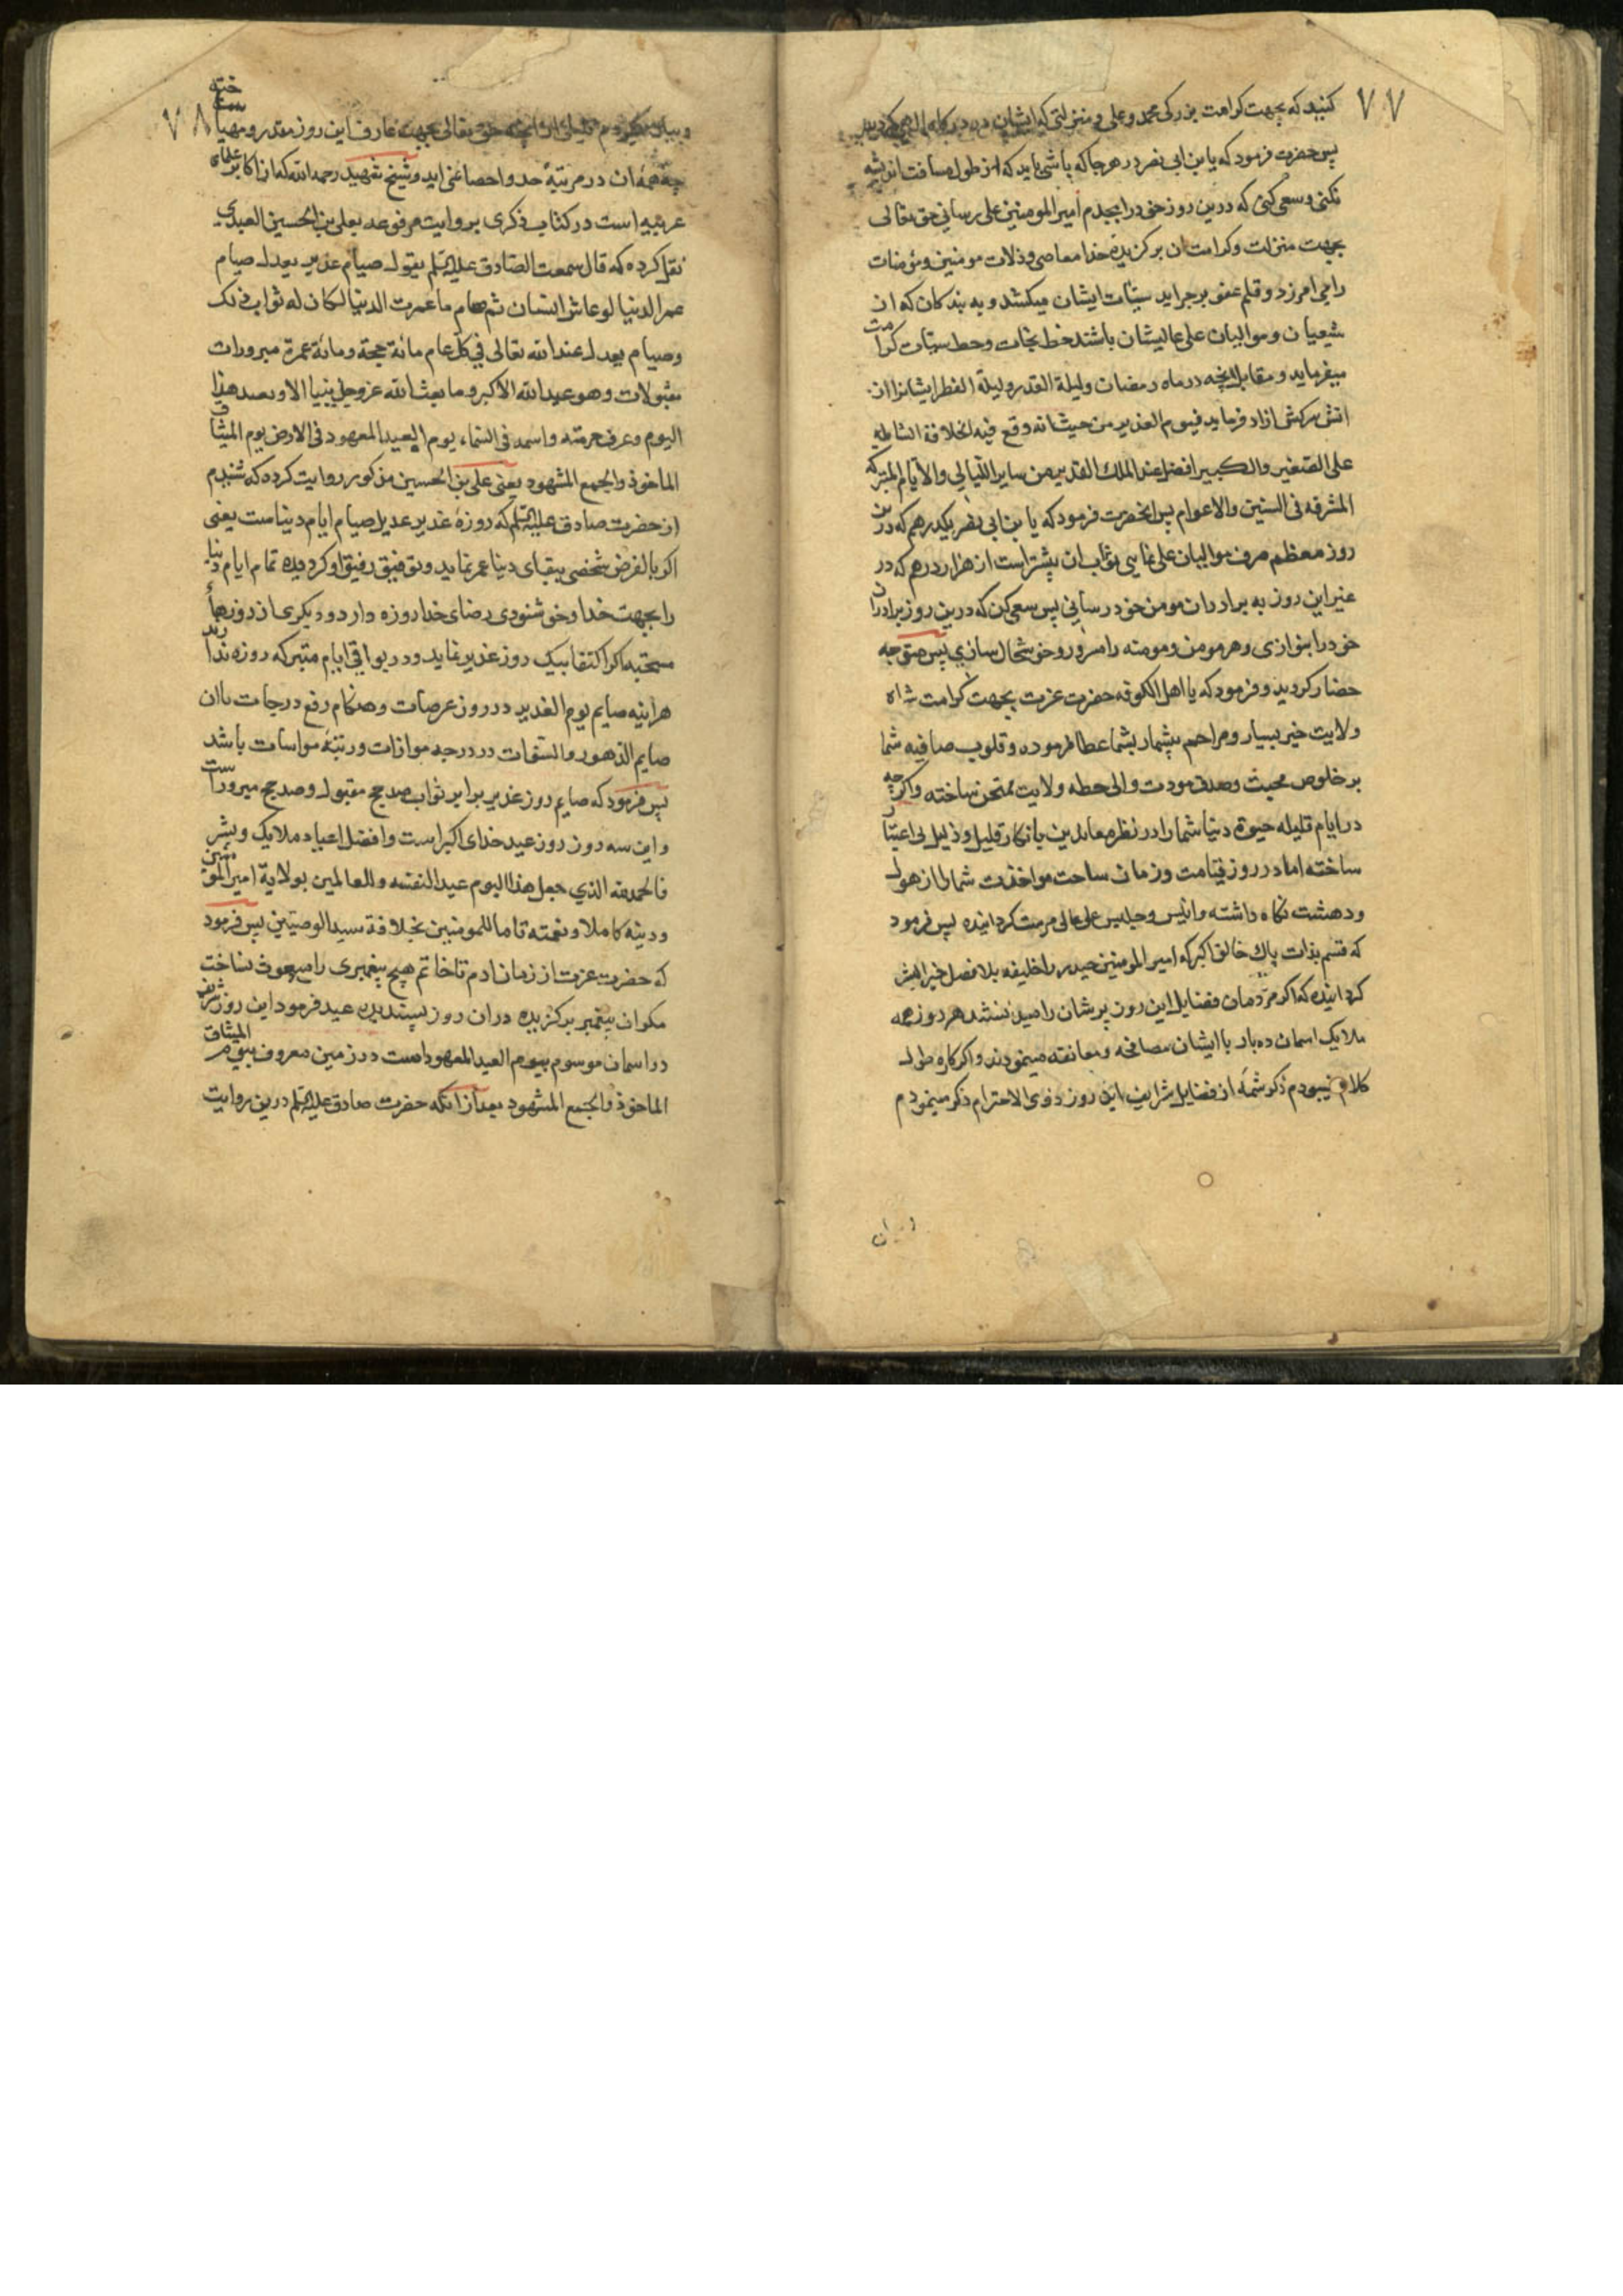 ۷۷
کنید که بجهت کرامت بزرکی محمد و علی و منزلتی که ایشان در درکاه الهی
پس حضرت فرمود که یا بن ابی نصر در هر جا که باشی باید که از طول مسافت اندیشه
نکنی و سعی کنی که درین روز خود را بخدم امیر المومنین علی رسانی حق تعالی
بجهت منزلت و کرامت ان برکزیده خدا معاصی و ذلات مومنین و مؤمنات
را می امرزد و قلم عفو بر جراید سیئات ایشان میکشد و به بند کان که از
شیعیان و موالیان علی عالیشان باشند خط نجات و حط سیئات کرامت
میفرماید و مقابل انچه در ماه رمضان و لیلة القدر و لیلة الفطر ایشانرا از
اتش سرکش ازاد فرماید فیوم الغدیر من حیث انه وقع فیه الخلافة الشاطیه
علی الصغیر والکبیر افضل عند الملک القدیر من سایر اللیالی والایام المتبرکه
المشرفه فی السنین والاعوام پس انحضرت فرمود که یا بن ابی نصر یکدرهم که درین
روز معظم صرف موالیان علی نمایی ثواب ان بیشتر است از هزار درهم که در
غیر این روز به برادران مومن خود رسانی پس سعی کن که درین روز برادران
خود را بنوازی و هر مومن و مومنه را مسرور و خوشحال سازی پس متوجه
حضار کردید و فرمود که یا اهل الکوفه حضرت عزت بجهت کرامت شاه
ولایت خیر بسیار و مراحم بیشمار بشما عطا فرموده و قلوب صافیه شما
بر خلوص محبت و صدق مودت والی حطه ولایت ممتحن ساخته و اکرچه
در ایام قلیله حیوة دنیا شما را در نظر معاندین بانکار قلیل و ذلیل بی اعتبار
ساخته اما در روز قیامت و زمان ساحت مواخذت شما را از هول
و دهشت نکاه داشته و انیس و جلیس علی عالی مرمت کردانیده پس فرمود
که قسم بذات پاک خالق اکبر که امیر المومنین حیدر را خلیفه بلا فصل خیر البشر
کردانیده که اکر مردمان فضایل این روز پرشان را میدانستند هر روزه
ملایک اسمان ده بار با ایشان مصافحه و معانقه مینمودند و اکر کاره طول
کلام نیبودم ذکر شمه از فضایل شرایف این روز ذوی الاحترام ذکر مینمودم
۷۸
و بیان میکردم قلیلی از انچه حق تعالی بجهت عارف این روز مقدر و مهیا ساخته
چه همه ان در مرتبهٔ حد و احصا نمی اید و شیخ شهید رحمه الله که از اکابر علمای
عربیه است در کتاب ذکری بروایت مرفوعه بعلی بن الحسین العبدی
نقل کرده که قال سمعت الصادق علیه السلم یقول صیام غدیر یعدل صیام
عمر الدنیا لو عاش انسان ثم صام ما عمرت الدنیا لکان له ثواب ذلک
وصیام یعدل عند الله تعالی فی کل عام مائة حجة ومائة عمرة مبرورات
مقبولات وهو عید الله الاکبر وما بعث الله عز وجل نبیا الا و هذا
الیوم وعرف حرمته واسمه فی السماء یوم العید المعهود فی الارض یوم المیثاق
الماخوذ والجمع المشهود یعنی علی بن الحسین مذکور روایت کرده که شنیدم
از حضرت صادق علیه السلم که روزهٔ غدیر عدیل صیام ایام دنیاست یعنی
اکر بالفرض شخصی ببقای دنیا عمر نماید و توفیق رفیق او کردیده تمام ایام دنیا
را بجهت خدا و خوشنودی رضای خدا روزه دارد و دیکری از روزهاء
مستحبه اکر اکتفا بیک روز غدیر نماید و در بواقی ایام متبرکه روزه ندارد
هر اینه صایم یوم الغدیر در روز عرصات و هنکام رفع درجات باان
صایم الدهور والسنوات در درجه موازات و رتبهٔ مواسات باشد
پس فرمود که صایم روز غدیر برابر ثواب صد حج مقبول و صد حج مبروراست
و این سه دون روز عید خدای اکبر است و افضل اعیاد ملایک و بشر
فالحمد لله الذی جعل هذا الیوم عید النفسه وللعالمین بولایة امیر المومنین
ودینه کاملا و نعمته تاما للمومنین بخلافة سید الوصیین پس فرمود
که حضرت عزت از زمان ادم تا خاتم هیچ پیغمبری را مبعوث نساخت
مکر ان پیغمبر برکزیده دران روز پسندیده عید فرمود این روز شریف
در اسمان موسوم بیوم العید المعهود است در زمین معروف بیوم المیثاق
الماخوذ والجمع المشهود بعد از انکه حضرت صادق علیه السلم درین روایت